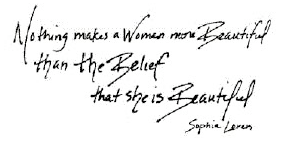 Nothing makes a Woman more Beautiful
than the Belief
that she is Beautiful
Sophia Loren